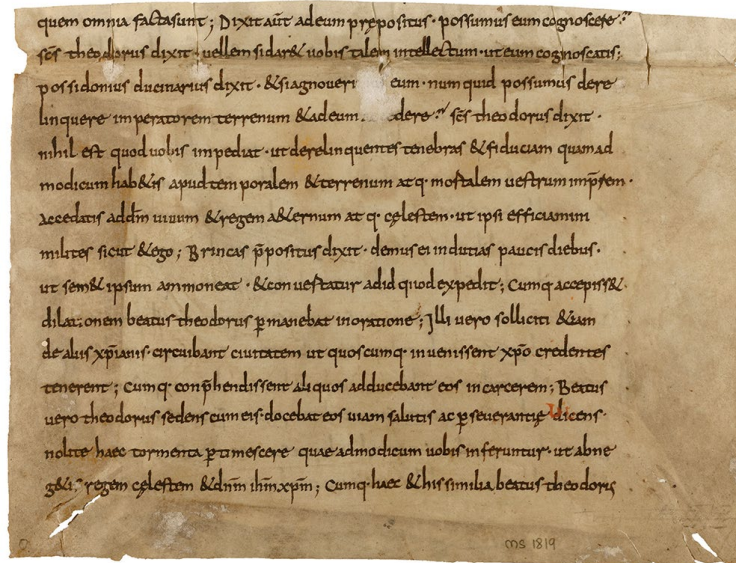 quem omnia facta sunt; Dixit aūt ad eum prępositus · possumus eum cognoscere?
scs̄ theodorus dixit · vellem si dar& uobis talem intellectum · ut eum cognoscatis;
possidonius ducinarius dixit · & si agnoueri eum · num quid possumus dere
linquere imperatorem terrenum & ad eum dere? scs̄ theodorus dixit ·
nihil est quod uobis impediat · ut derelinquentes tenebras & fiduciam quam ad
modicum hab&is apud temporalem & terrenum atq· mortalem uestrum imp̄rem ·
accedatis ad dm̄ uiuum & regem a&ernum atq· cęlestem · ut ipsi efficiamini
milites sicut & ego; Brincas p̄positus dixit · demus ei indutias paucis diebus ·
ut sem& ipsum ammoneat · & conuertatur ad id quod expedit; Cumq· accepiss&
dilationem beatus theodorus ꝑmanebat in oratione; Illi uero solliciti &iam
de aliis xp̄ianis · circuibant ciuitatem ut quoscumq· inuenissent xp̄o credentes
tenerent; Cumq· conp̄hendissent aliquos adducebant eos in carcerem; Beatus
uero theodorus sedens cum eis · docebat eos uiam salutis ac ꝑseuerantię dicens ·
nolite haec tormenta ꝑtimescere quae ad modicum uobis inferuntur · ut abne
g&is regem cęlestem & dnm̄ ihm̄ xp̄m; Cumq· haec & his similia beatus theodorus
ms 1819